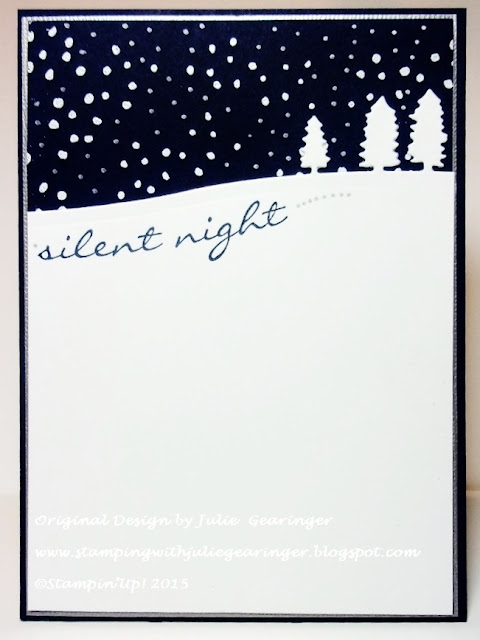 silent night
Original Design by Julie Gearinger
www.stampingwithjuliegearinger.blogspot.com
©Stampin'Up! 2015